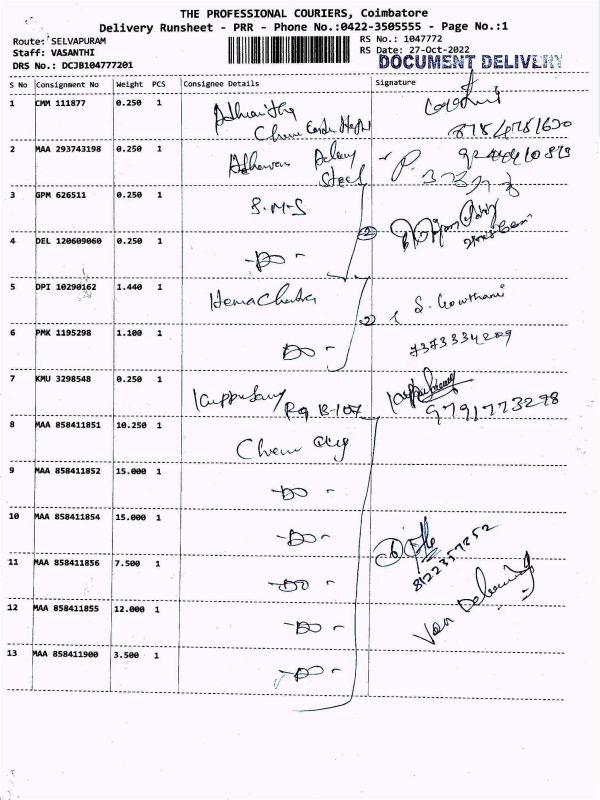 THE PROFESSIONAL COURIERS, Coimbatore
Delivery Runsheet - PRR - Phone No.:0422-3505555 - Page No.:1
Route: SELVAPURAM
RS No.: 1047772
Staff: VASANTHI
RS Date: 27-Oct-2022
DRS No.: DCJB104777201
DOCUMENT DELIVERY
S No Consignment No Weight PCS Consignee Details Signature
1 CMM 111877 0.250 1
2 MAA 293743198 0.250 1
Steel
3 GPM 626511 0.250 1 S.M-S
4 DEL 120609060 0.250 1 -DO- 2
5 DPI 10290162 1.440 1 Hemachandra S. Gowthami
2
6 PMK 1195298 1.100 1 DO - 7373334209
7 KMU 3298548 0.250 1 Karppusamy Rg B-107 9791773298
8 MAA 858411851 10.250 1
9 MAA 858411852 15.000 1 -DO -
10 MAA 858411854 15.000 1 -DO - 6
8122357252
11 MAA 858411856 7.500 1 -DO -
12 MAA 858411855 12.000 1 -DO - Van Delivery
13 MAA 858411900 3.500 1 -DO -